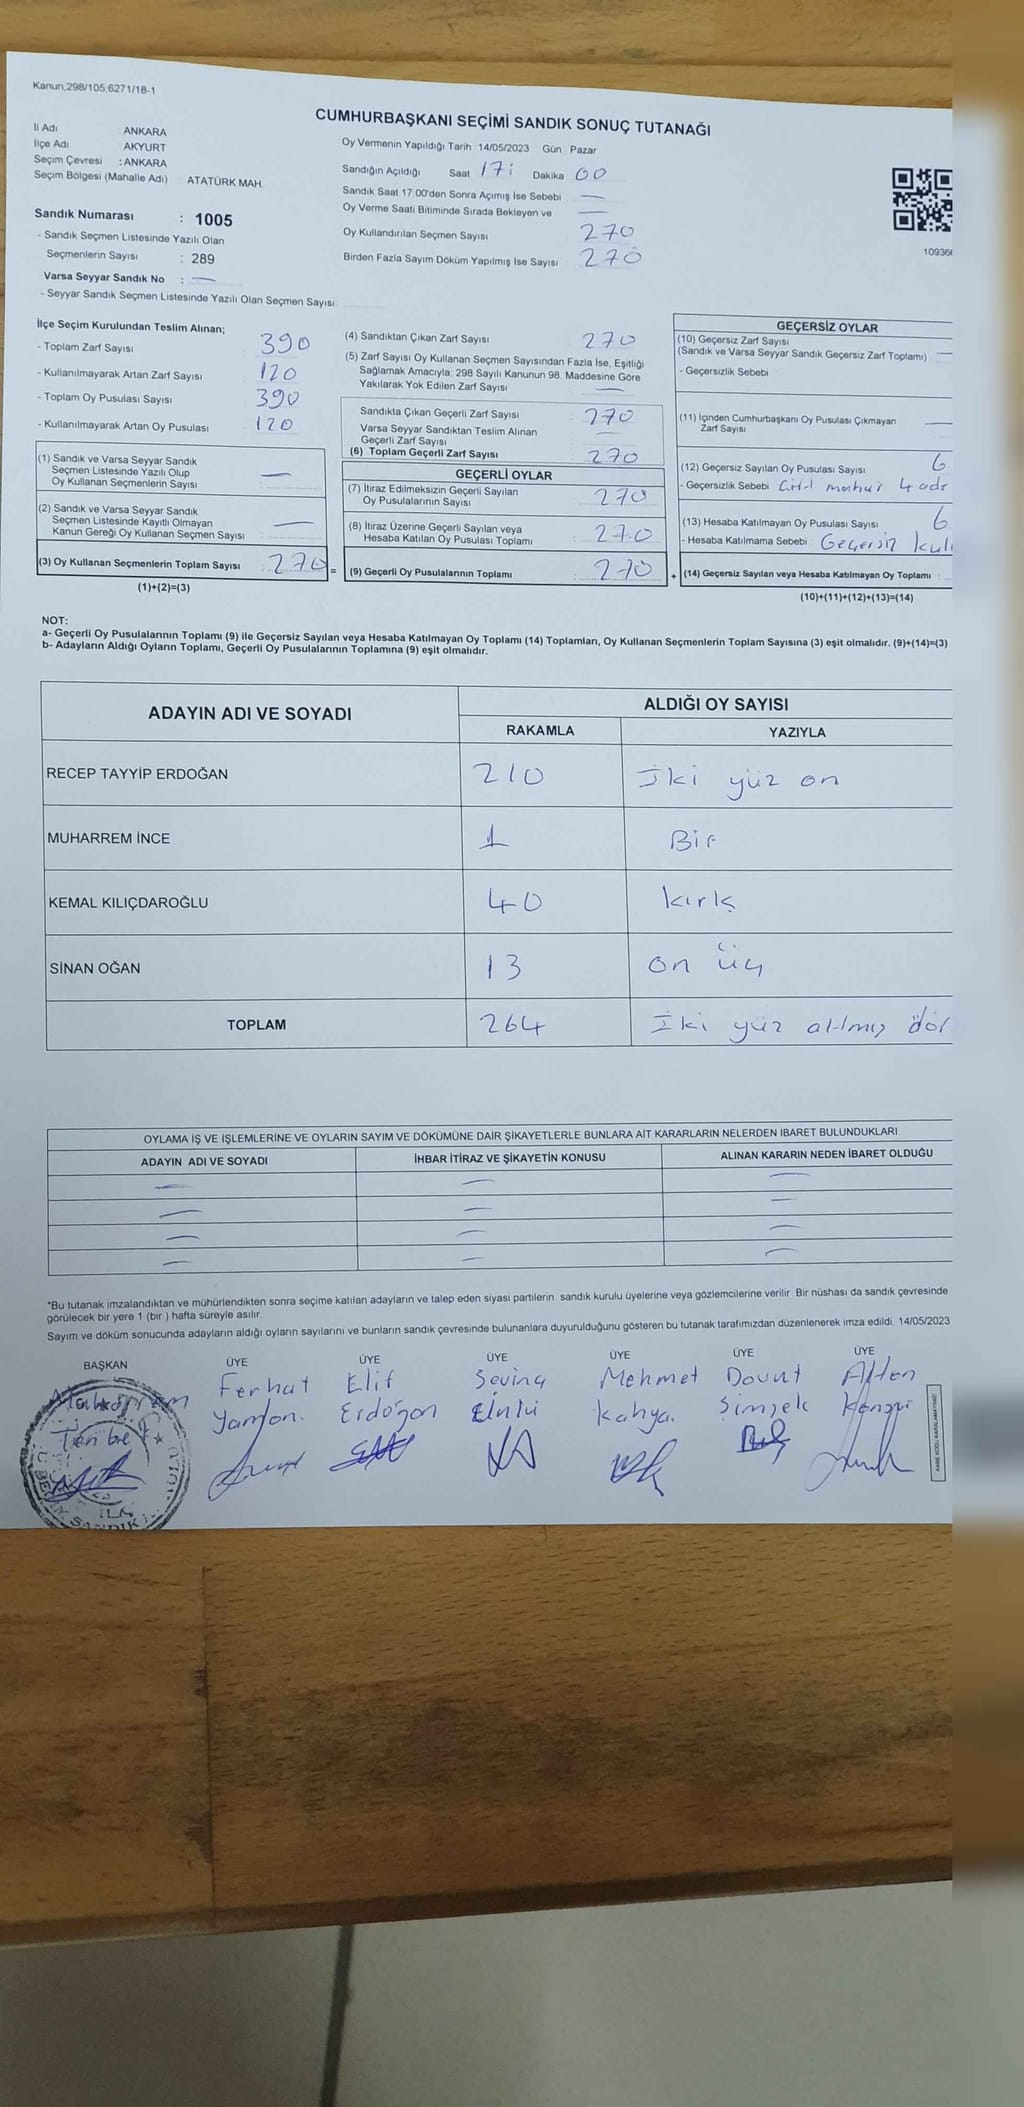 Kanun;298/105;6271/18-1
CUMHURBAŞKANI SEÇİMİ SANDIK SONUÇ TUTANAĞI
İl Adı ANKARA
İlçe Adı AKYURT
Seçim Çevresi : ANKARA
Seçim Bölgesi (Mahalle Adı) ATATÜRK MAH.
Sandık Numarası : 1005
- Sandık Seçmen Listesinde Yazılı Olan
Seçmenlerin Sayısı : 289
Varsa Seyyar Sandık No : —
- Seyyar Sandık Seçmen Listesinde Yazılı Olan Seçmen Sayısı
Oy Vermenin Yapıldığı Tarih 14/05/2023 Gün : Pazar
Sandığın Açıldığı Saat 17: Dakika 00
Sandık Saat 17:00'den Sonra Açımış İse Sebebi —
Oy Verme Saati Bitiminde Sırada Bekleyen ve —
Oy Kullandırılan Seçmen Sayısı 270
Birden Fazla Sayım Döküm Yapılmış İse Sayısı 270
10936
İlçe Seçim Kurulundan Teslim Alınan;
- Toplam Zarf Sayısı 390
- Kullanılmayarak Artan Zarf Sayısı 120
- Toplam Oy Pusulası Sayısı 390
- Kullanılmayarak Artan Oy Pusulası 120
(1) Sandık ve Varsa Seyyar Sandık
Seçmen Listesinde Yazılı Olup
Oy Kullanan Seçmenlerin Sayısı —
(2) Sandık ve Varsa Seyyar Sandık
Seçmen Listesinde Kayıtlı Olmayan
Kanun Gereği Oy Kullanan Seçmen Sayısı —
(3) Oy Kullanan Seçmenlerin Toplam Sayısı 270 =
(1)+(2)=(3)
(4) Sandıktan Çıkan Zarf Sayısı 270
(5) Zarf Sayısı Oy Kullanan Seçmen Sayısından Fazla İse, Eşitliği
Sağlamak Amacıyla; 298 Sayılı Kanunun 98. Maddesine Göre
Yakılarak Yok Edilen Zarf Sayısı —
Sandıkta Çıkan Geçerli Zarf Sayısı 270
Varsa Seyyar Sandıktan Teslim Alınan
Geçerli Zarf Sayısı —
(6) Toplam Geçerli Zarf Sayısı 270
GEÇERLİ OYLAR
(7) İtiraz Edilmeksizin Geçerli Sayılan
Oy Pusulalarının Sayısı 270
(8) İtiraz Üzerine Geçerli Sayılan veya
Hesaba Katılan Oy Pusulası Toplamı 270
(9) Geçerli Oy Pusulalarının Toplamı 270 +
GEÇERSİZ OYLAR
(10) Geçersiz Zarf Sayısı
(Sandık ve Varsa Seyyar Sandık Geçersiz Zarf Toplamı) —
- Geçersizlik Sebebi
(11) İçinden Cumhurbaşkanı Oy Pusulası Çıkmayan
Zarf Sayısı —
(12) Geçersiz Sayılan Oy Pusulası Sayısı 6
- Geçersizlik Sebebi 4
(13) Hesaba Katılmayan Oy Pusulası Sayısı 6
- Hesaba Katılmama Sebebi Geçersiz kul
(14) Geçersiz Sayılan veya Hesaba Katılmayan Oy Toplamı :
(10)+(11)+(12)+(13)=(14)
NOT:
a- Geçerli Oy Pusulalarının Toplamı (9) ile Geçersiz Sayılan veya Hesaba Katılmayan Oy Toplamı (14) Toplamları, Oy Kullanan Seçmenlerin Toplam Sayısına (3) eşit olmalıdır. (9)+(14)=(3)
b- Adayların Aldığı Oyların Toplamı, Geçerli Oy Pusulalarının Toplamına (9) eşit olmalıdır.
ADAYIN ADI VE SOYADI ALDIĞI OY SAYISI
RAKAMLA YAZIYLA
RECEP TAYYİP ERDOĞAN 210 İki yüz on
MUHARREM İNCE 1 Bir
KEMAL KILIÇDAROĞLU 40 kırk
SİNAN OĞAN 13 on üç
TOPLAM 264 İki yüz altmış dör
OYLAMA İŞ VE İŞLEMLERİNE VE OYLARIN SAYIM VE DÖKÜMÜNE DAİR ŞİKAYETLERLE BUNLARA AİT KARARLARIN NELERDEN İBARET BULUNDUKLARI
ADAYIN ADI VE SOYADI İHBAR İTİRAZ VE ŞİKAYETİN KONUSU ALINAN KARARIN NEDEN İBARET OLDUĞU
— — —
— — —
— — —
— — —
*Bu tutanak imzalandıktan ve mühürlendikten sonra seçime katılan adayların ve talep eden siyasi partilerin sandık kurulu üyelerine veya gözlemcilerine verilir. Bir nüshası da sandık çevresinde
görülecek bir yere 1 (bir ) hafta süreyle asılır.
Sayım ve döküm sonucunda adayların aldığı oyların sayılarını ve bunların sandık çevresinde bulunanlara duyurulduğunu gösteren bu tutanak tarafımızdan düzenlenerek imza edildi. 14/05/2023
BAŞKAN ÜYE ÜYE ÜYE ÜYE ÜYE ÜYE
Ferhat Elif Sevinç Mehmet Davut
Erdoğan Kahya. Şimşek
KARE KODU KARALAMAYINIZ!